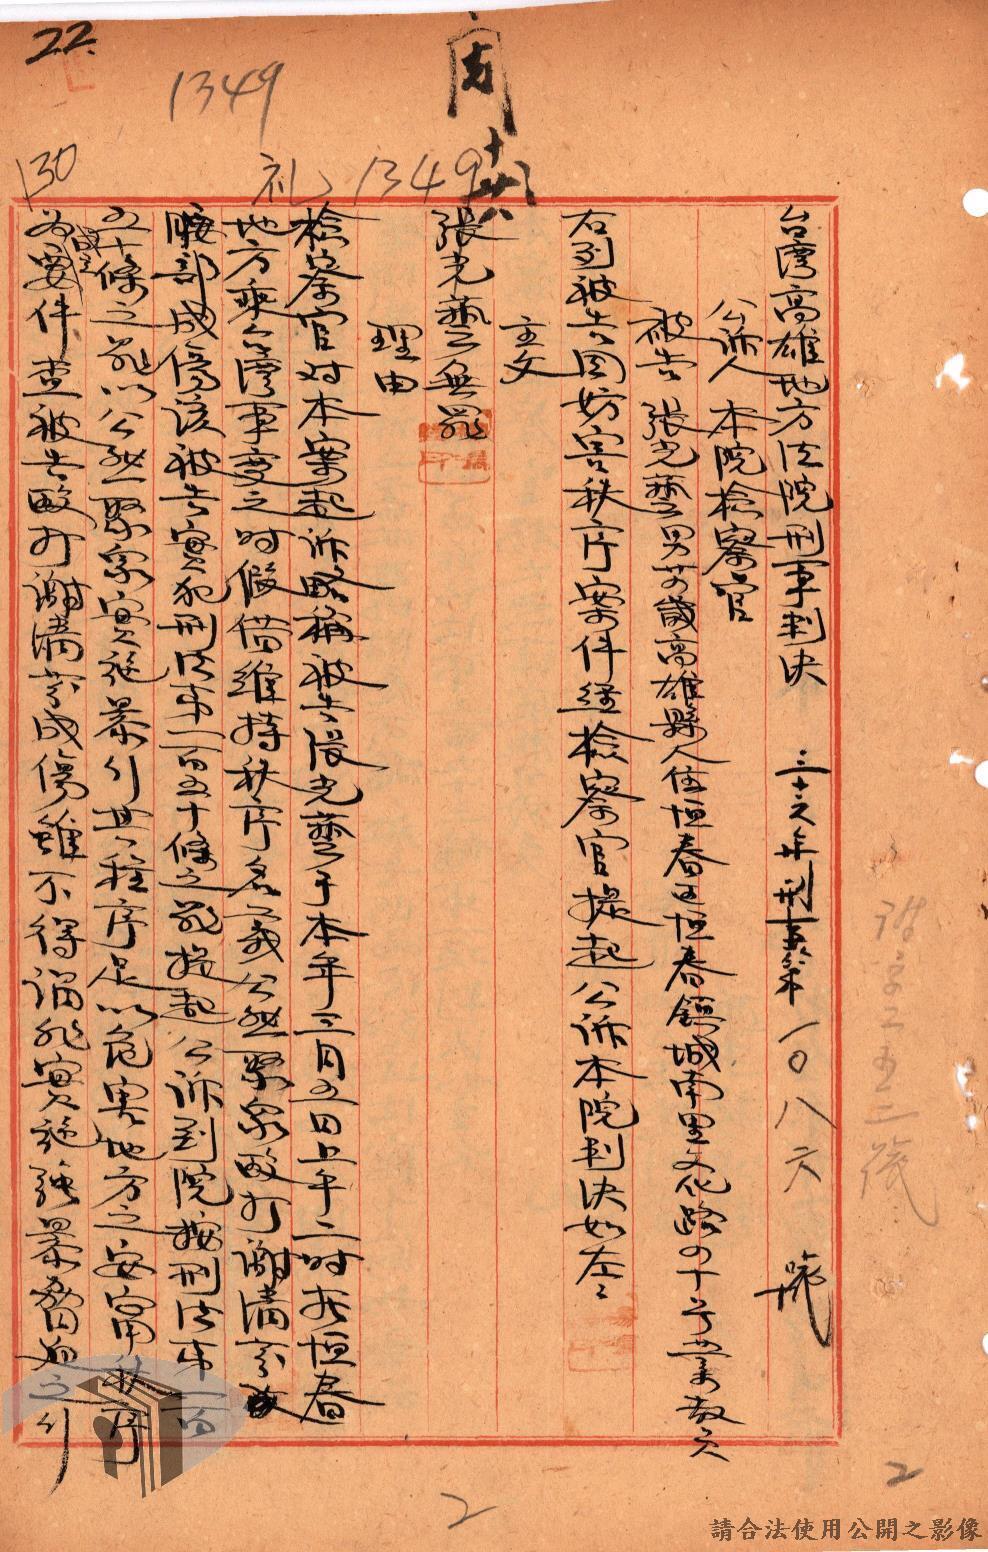 22
1349
130
礼 1349
台灣高雄地方法院刑事判決 三十六年刑事第一〇八六號
公訴人 本院檢察官
被告 張光藝男 歲高雄縣人住恒春區恒春鎮城南里文化路四十号業
右列被告因妨害秩序案件經檢察官提起公訴本院判決如左:
主文
張光藝無罪
理由
檢察官对本案起訴略稱被告張光藝于本年三月五日上午二時在恒春
地方乘台灣事变之时假借維持秩序名義公然聚眾毆打謝滿
腰部成傷該被告實犯刑法第一百五十條之罪提起公訴到院按刑法第一百
五十條之罪以公然聚眾實施暴行其程序足以危害地方之安甯秩序
為成立要件查被告毆打謝滿 成傷雖不得謂非實施強暴脅迫之行
2
2
請合法使用公開之影像